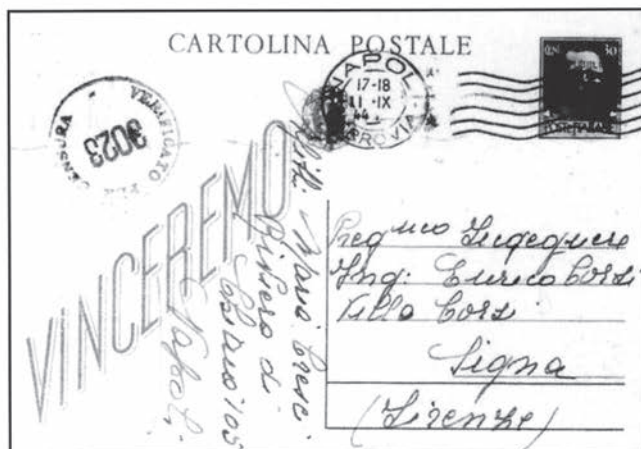 CARTOLINA POSTALE
NAPOLI
17-18
11·IX
44
FERROVIA
30
POSTE ITALIANE
VERIFICATO PER CENSURA
3023
VINCEREMO
Mitt. Maria Cresci
Riviera di
Chiaia 105
Napoli
Preg mo Ingegnere
Ing: Enrico Corsi
Villa Corsi
Signa
(Firenze)